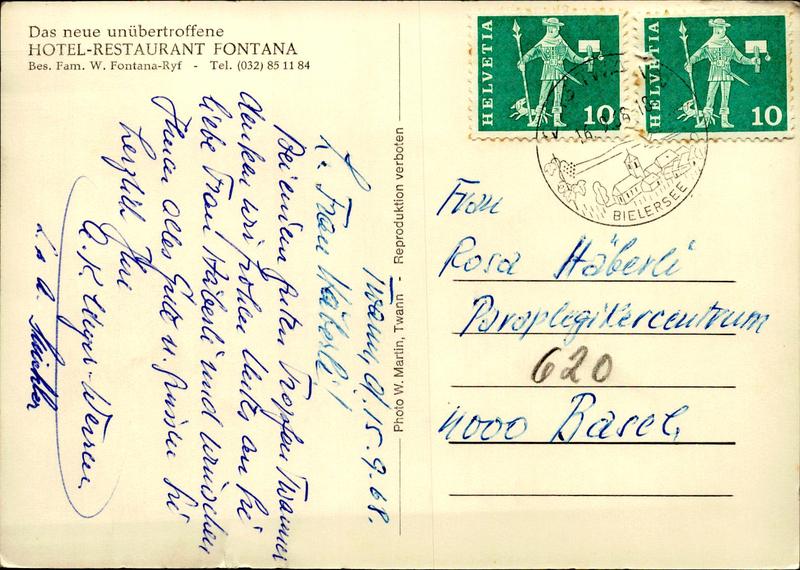 Das neue unübertroffene
HOTEL-RESTAURANT FONTANA
Bes. Fam. W. Fontana-Ryf - Tel. (032) 85 11 84
Twann, d/ 15.9.68.
L. Frau Häberli!
Bei einem guten Tropfen Twanner
denken wir frohen Mutes an Sie
liebe Frau Häberli und wünschen
Ihnen alles Gute u. grüssen Sie
herzlich Ihre
Photo W. Martin, Twann - Reproduktion verboten
HELVETIA
10
HELVETIA
10
BIELERSEE
Frau
Rosa Häberli
Paraplegikercentrum
620
4000 Basel